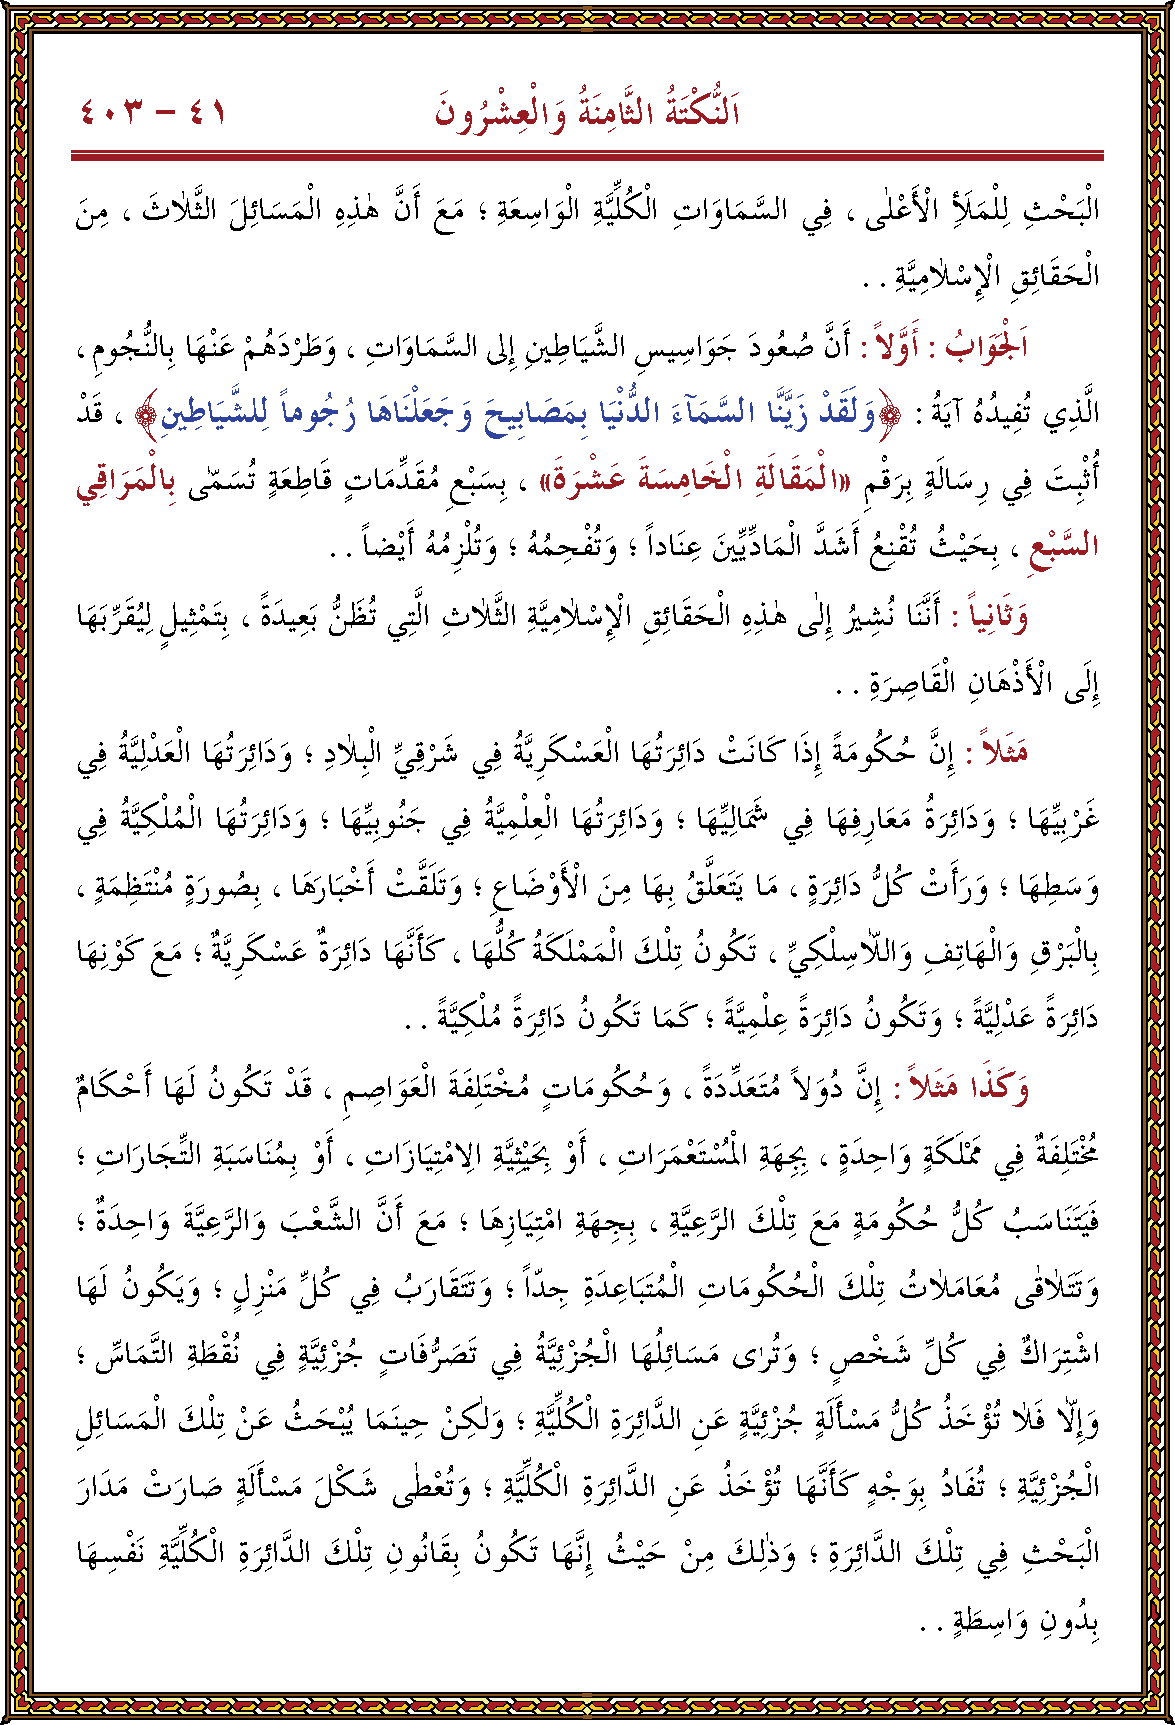 اَلنُّكْتَةُ الثَّامِنَةُ وَالْعِشْرُونَ ٤١ - ٤٠٣
الْبَحْثِ لِلْمَلَأِ الْأَعْلٰى ، فِي السَّمَاوَاتِ الْكُلِّيَّةِ الْوَاسِعَةِ ؛ مَعَ أَنَّ هٰذِهِ الْمَسَائِلَ الثَّلَاثَ ، مِنَ
الْحَقَائِقِ الْإِسْلَامِيَّةِ . .
اَلْجَوَابُ : أَوَّلاً : أَنَّ صُعُودَ جَوَاسِيسِ الشَّيَاطِينِ إِلَى السَّمَاوَاتِ ، وَطَرْدَهُمْ عَنْهَا بِالنُّجُومِ ،
الَّذِي تُفِيدُهُ آيَةُ : ﴿وَلَقَدْ زَيَّنَّا السَّمَآءَ الدُّنْيَا بِمَصَابِيحَ وَجَعَلْنَاهَا رُجُوماً لِلشَّيَاطِينِ﴾ ، قَدْ
أُثْبِتَ فِي رِسَالَةٍ بِرَقْمِ «الْمَقَالَةِ الْخَامِسَةَ عَشْرَةَ» ، بِسَبْعِ مُقَدِّمَاتٍ قَاطِعَةٍ تُسَمّٰى بِالْمَرَاقِي
السَّبْعِ ، بِحَيْثُ تُقْنِعُ أَشَدَّ الْمَادِّيِّينَ عِنَاداً ؛ وَتُفْحِمُهُ ؛ وَتُلْزِمُهُ أَيْضاً . .
وَثَانِياً : أَنَّنَا نُشِيرُ إِلٰى هٰذِهِ الْحَقَائِقِ الْإِسْلَامِيَّةِ الثَّلَاثِ الَّتِي تُظَنُّ بَعِيدَةً ، بِتَمْثِيلٍ لِيُقَرِّبَهَا
إِلَى الْأَذْهَانِ الْقَاصِرَةِ . .
مَثَلاً : إِنَّ حُكُومَةً إِذَا كَانَتْ دَائِرَتُهَا الْعَسْكَرِيَّةُ فِي شَرْقِيِّ الْبِلَادِ ؛ وَدَائِرَتُهَا الْعَدْلِيَّةُ فِي
غَرْبِيِّهَا ؛ وَدَائِرَةُ مَعَارِفِهَا فِي شَمَالِيِّهَا ؛ وَدَائِرَتُهَا الْعِلْمِيَّةُ فِي جَنُوبِيِّهَا ؛ وَدَائِرَتُهَا الْمُلْكِيَّةُ فِي
وَسَطِهَا ؛ وَرَأَتْ كُلُّ دَائِرَةٍ ، مَا يَتَعَلَّقُ بِهَا مِنَ الْأَوْضَاعِ ؛ وَتَلَقَّتْ أَخْبَارَهَا ، بِصُورَةٍ مُنْتَظِمَةٍ ،
بِالْبَرْقِ وَالْهَاتِفِ وَاللَّاسِلْكِيِّ ، تَكُونُ تِلْكَ الْمَمْلَكَةُ كُلُّهَا ، كَأَنَّهَا دَائِرَةٌ عَسْكَرِيَّةٌ ؛ مَعَ كَوْنِهَا
دَائِرَةً عَدْلِيَّةً ؛ وَتَكُونُ دَائِرَةً عِلْمِيَّةً ؛ كَمَا تَكُونُ دَائِرَةً مُلْكِيَّةً . .
وَكَذَا مَثَلاً : إِنَّ دُوَلاً مُتَعَدِّدَةً ، وَحُكُومَاتٍ مُخْتَلِفَةَ الْعَوَاصِمِ ، قَدْ تَكُونُ لَهَا أَحْكَامٌ
مُخْتَلِفَةٌ فِي مَمْلَكَةٍ وَاحِدَةٍ ، بِجِهَةِ الْمُسْتَعْمَرَاتِ ، أَوْ بِحَيْثِيَّةِ الِامْتِيَازَاتِ ، أَوْ بِمُنَاسَبَةِ التِّجَارَاتِ ؛
فَيَتَنَاسَبُ كُلُّ حُكُومَةٍ مَعَ تِلْكَ الرَّعِيَّةِ ، بِجِهَةِ امْتِيَازِهَا ؛ مَعَ أَنَّ الشَّعْبَ وَالرَّعِيَّةَ وَاحِدَةٌ ؛
وَتَتَلَاقٰى مُعَامَلَاتُ تِلْكَ الْحُكُومَاتِ الْمُتَبَاعِدَةِ جِدّاً ؛ وَتَتَقَارَبُ فِي كُلِّ مَنْزِلٍ ؛ وَيَكُونُ لَهَا
اشْتِرَاكٌ فِي كُلِّ شَخْصٍ ؛ وَتُرٰى مَسَائِلُهَا الْجُزْئِيَّةُ فِي تَصَرُّفَاتٍ جُزْئِيَّةٍ فِي نُقْطَةِ التَّمَاسِّ ؛
وَإِلَّا فَلَا تُؤْخَذُ كُلُّ مَسْأَلَةٍ جُزْئِيَّةٍ عَنِ الدَّائِرَةِ الْكُلِّيَّةِ ؛ وَلٰكِنْ حِينَمَا يُبْحَثُ عَنْ تِلْكَ الْمَسَائِلِ
الْجُزْئِيَّةِ ؛ تُفَادُ بِوَجْهٍ كَأَنَّهَا تُؤْخَذُ عَنِ الدَّائِرَةِ الْكُلِّيَّةِ ؛ وَتُعْطٰى شَكْلَ مَسْأَلَةٍ صَارَتْ مَدَارَ
الْبَحْثِ فِي تِلْكَ الدَّائِرَةِ ؛ وَذٰلِكَ مِنْ حَيْثُ إِنَّهَا تَكُونُ بِقَانُونِ تِلْكَ الدَّائِرَةِ الْكُلِّيَّةِ نَفْسِهَا
بِدُونِ وَاسِطَةٍ . .